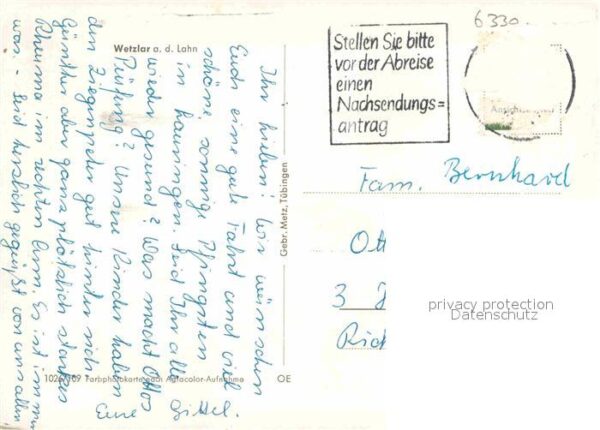 Wetzlar a. d. Lahn
Ihr Lieben! Wir wünschen
Euch eine gute Fahrt und viel
schöne sonnige Pfingsten
in Hausingen. Seid Ihr alle
wieder gesund? Was macht Ottos
Prüfung? Unsere Kinder haben
den Ziegenpeter gut hinter sich
Günther aber ganz plötzlich starkes
Rheuma im rechten Arm. Es ist immer
was – Seid herzlich gegrüßt von uns allen
Eure Gittel.
Gebr. Metz, Tübingen
1026/109 Farbphotokarte nach Agfacolor-Aufnahme
OE
6330
Stellen Sie bitte
vor der Abreise
einen
Nachsendungs=
antrag
Fam. Bernhard
Ott
3
Rich
privacy protection
Datenschutz